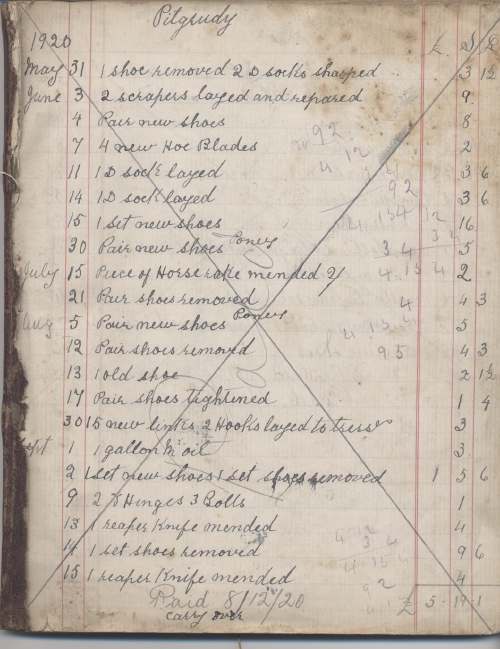 Pitgrudy
1920 £ S £
May 31 1 shoe removed 2 D socks shapped 3 1½
June 3 2 scrapers layed and repared 9
4 Pair new shoes 8
7 4 new Hoe Blades 2
11 1 D sock layed 3 6
14 1 D sock layed 3 6
15 1 set new shoes 16
30 Pair new shoes Poney 5
July 15 Piece of Horse rake mended 2/ 2
21 Pair shoes removed 4 3
Aug 5 Pair new shoes Poney 5
12 Pair shoes removed 4 3
13 1 old shoe 2 1½
17 Pair shoes tightened 1 4
30 15 new links 2 Hooks layed to tress 3
Sept 1 1 gallon oil 3
2 1 set new shoes 1 set shoes removed 1 5 6
9 2 Hinges 3 Bolts 1
13 1 reaper Knife mended 4
14 1 set shoes removed 9 6
15 1 reaper Knife mended 4
Paid 8/12/20 £ 5-19-1
carry over